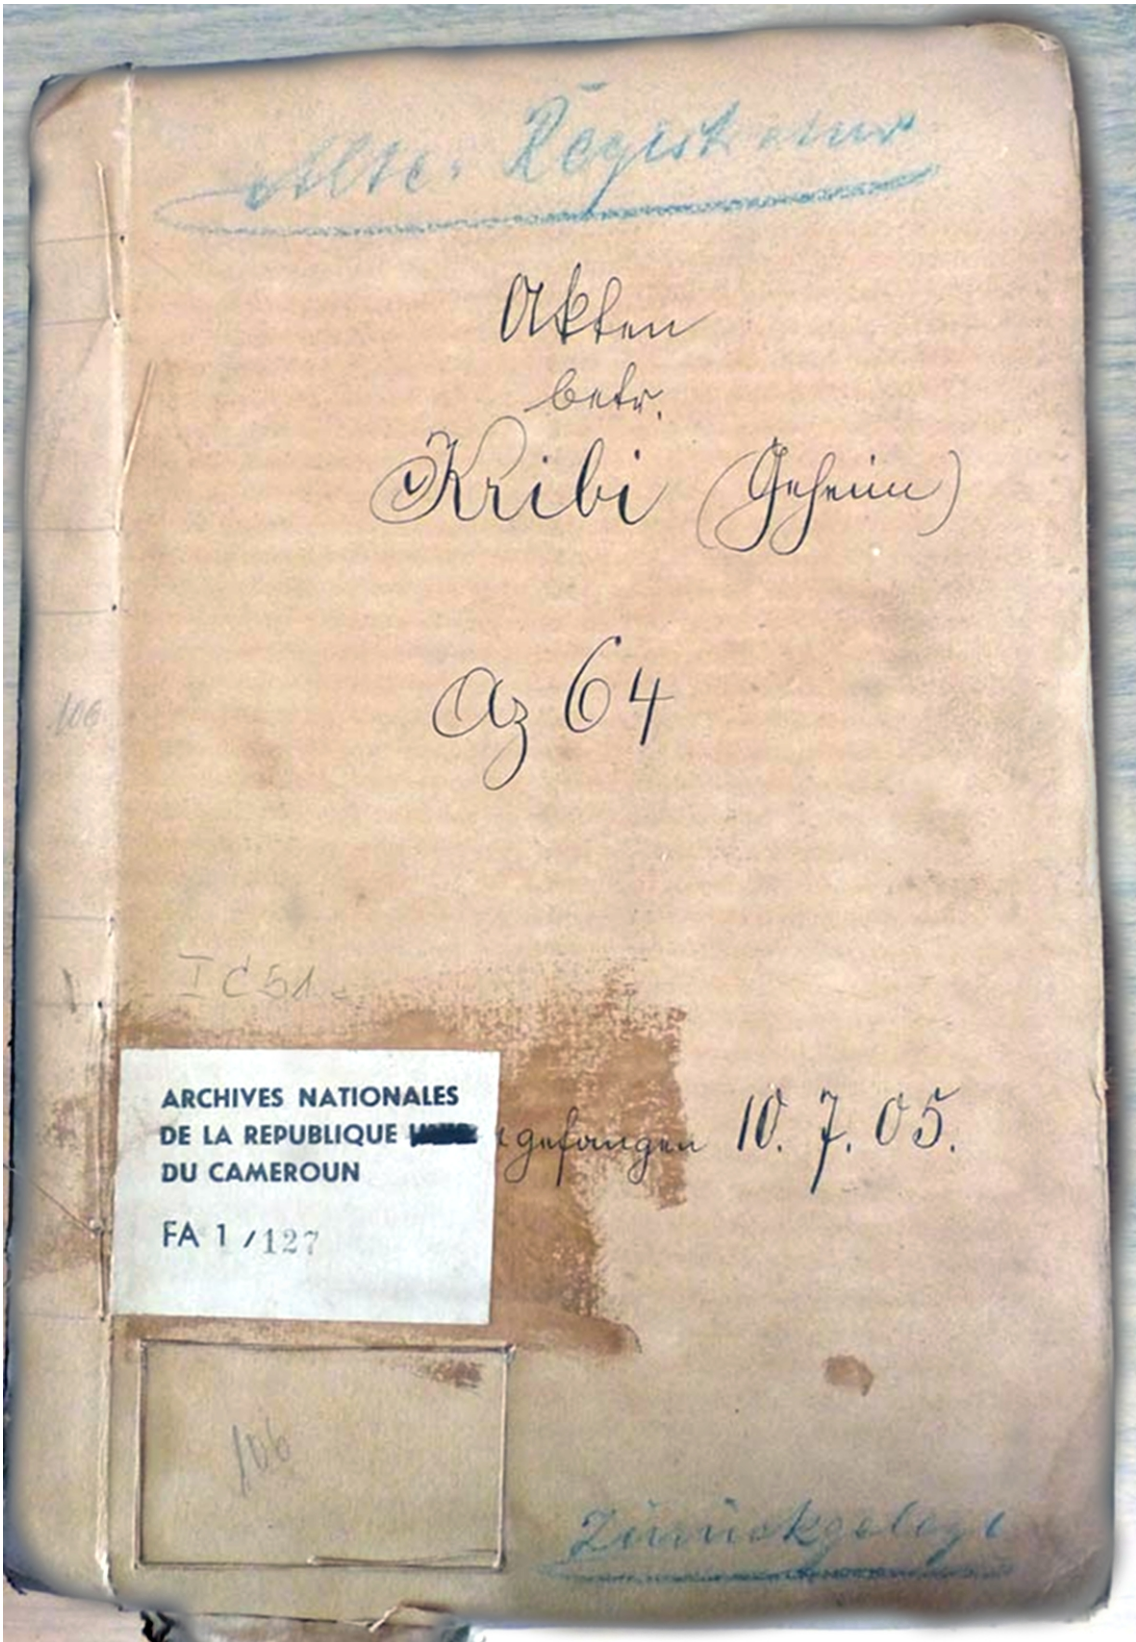 Alte Registratur
Akten
betr.
Kribi (Geheim)
Az 64
106
I C 51
ARCHIVES NATIONALES
DE LA REPUBLIQUE
DU CAMEROUN
FA 1 / 127
gefangen 10. 7. 05.
106
Zurückgelegt